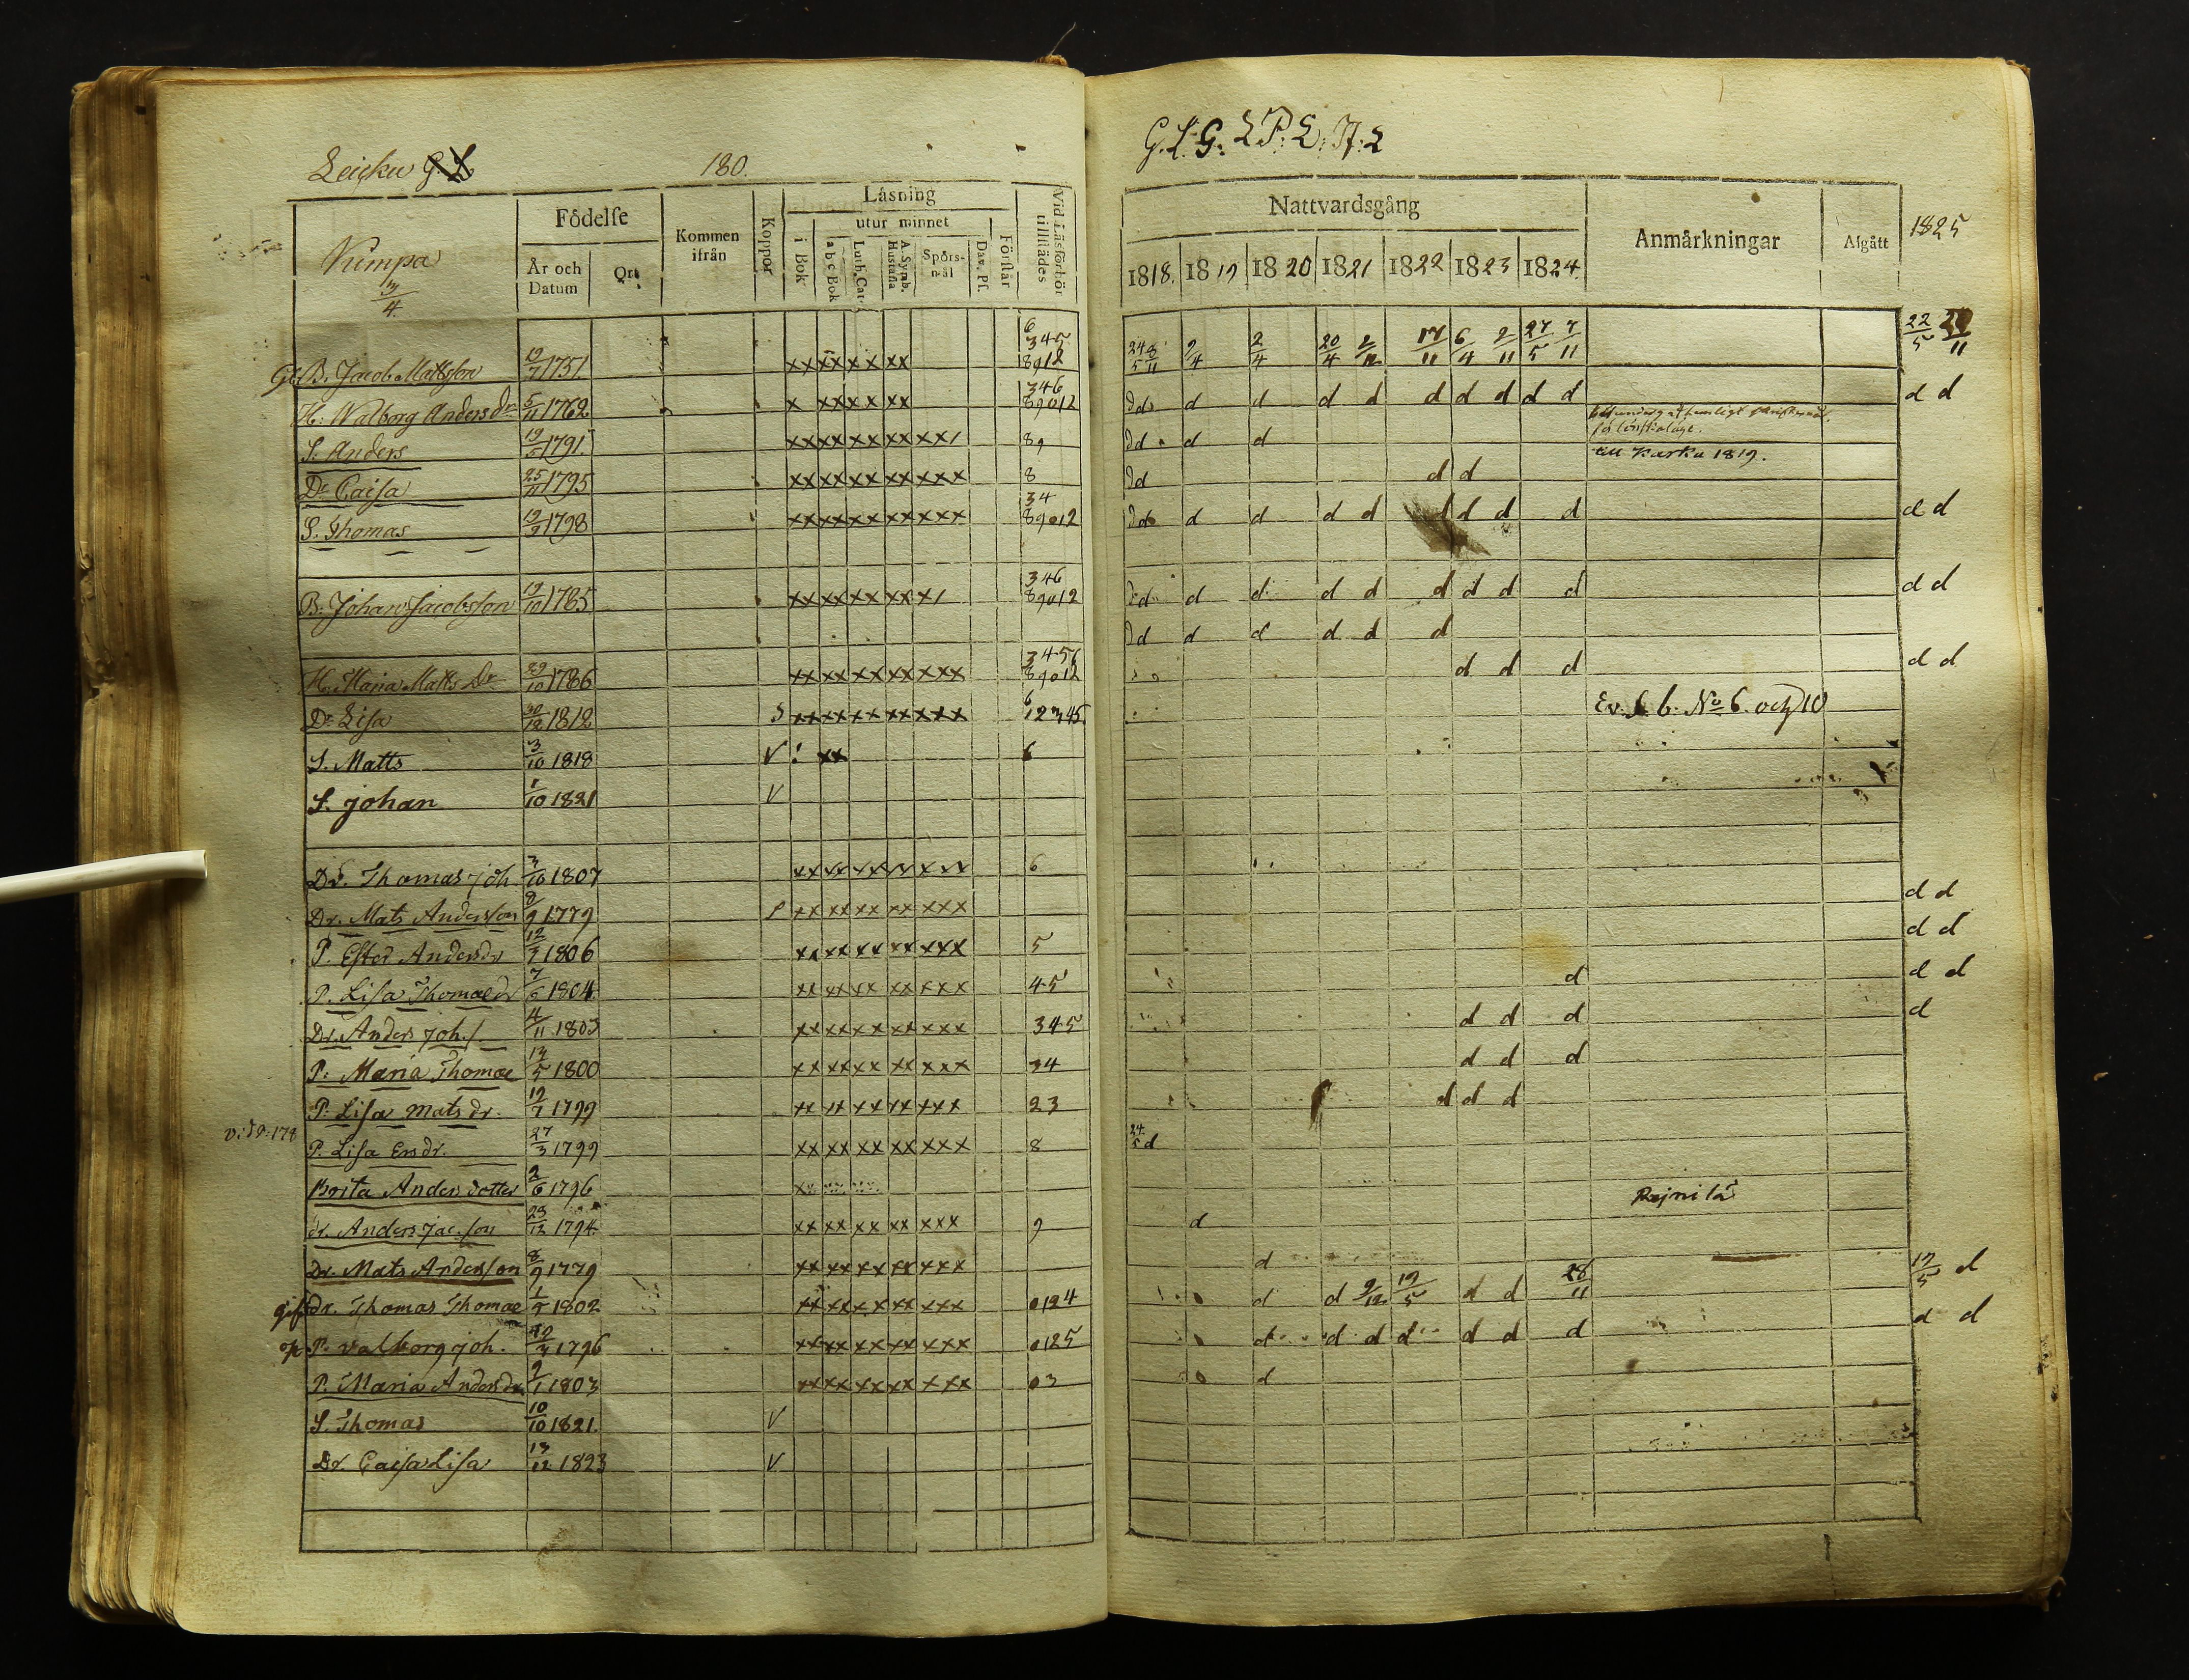 Leicku G. L.
180.
Födelse
Kommen ifrån
Koppor
Läsning
utur minnet
i Bok
a b c Bok
Luth. Cat.
A. Symb. Hustafla
Spörsmål
Dav. Ps.
Förstår
Vid Läsförhör tillstädes
År och Datum
Ort
Kumpa
3/4.
Gl. B. Jacob Mattsson 19/7 1751. xx xx xx xx 6 345 8912
H: Walborg Anders dr 5/11 1762 x xx xx xx 346 89012
S. Anders 1791. xx xx xx xx xx/ 89
Dr Caisa 25/11 1795 xx xx xx xx xxx 8
S. Thomas 19/9 1798 xx xx xx xx xxx 34 89012
B: Johan Jacobsson 19/10 1785 xx xx xx xx x/ 346 89012
H. Maria Matts Dr 29/10 1786 xx xx xx xx xxx 3456 89012
Dr Lisa 30/12 1812 S xx xx xx xx xxx 6 12345
S. Matts 3/10 1818 V xx 6
S. Johan 1/10 1821 V
Dr. Thomas Joh. 3/10 1807 xx xx xx xx xxx 6
Dr. Mats Andersson 8/9 1779 xx xx xx xx xxx
P. Ester Andersdr 1806 xx xx xx xx xxx 5
P. Lisa Thomaedr 7/6 1804. xx xx xx xx xxx 45
Dr. Anders Joh. 4/11 1803 xx xx xx xx xxx 345
P: Maria Thomae 1800 xx xx xx xx xxx 34
P: Lisa Mats dr. 19/7 1799 xx xx xx xx xxx 23
v: 178
P. Lisa Ersdr. 27/3 1799 xx xx xx xx xxx 8
Brita Andersdotter 2/6 1796
dr. Anders Jac.son 1794 xx xx xx xx xxx 9
Dr. Mats Andersson 8/9 1779 xx xx xx xx xxx
gift dr. Thomas Thomae 1802 xx xx xx xx xxx 0124
P. Valborg Joh. 1796 xx xx xx xx xxx 0125
P. Maria Andersdr 1803 xx xx xx xx xxx 03
S. Thomas 10/10 1821. V
Dr. Caisa Lisa 13/12 1823 V
G. L. G: L P: L: N: 2
Nattvardsgång
Anmärkningar
Afgått
1825
1818. 1819 1820 1821 1822 1823 1824.
24/5 8/11 2/4 2/4 20/4 2/12 17/11 6/4 2/11 27/5 7/11 22/5
dd d d d d d d d d d d d
dd d d
till Karku 1819.
dd d d
dd d d d d d d d d d d
dd d d d d d d d d d d
dd d d d d d
d d d d d
Ev. S. b. No 6. och 10
d d
d d
d d d
d d d d
d d d
d d d
24/5 d
Rajnila
d
d
d d 9/12 19/5 d d 28/11 17/5 d
d d d d d d d d d
d